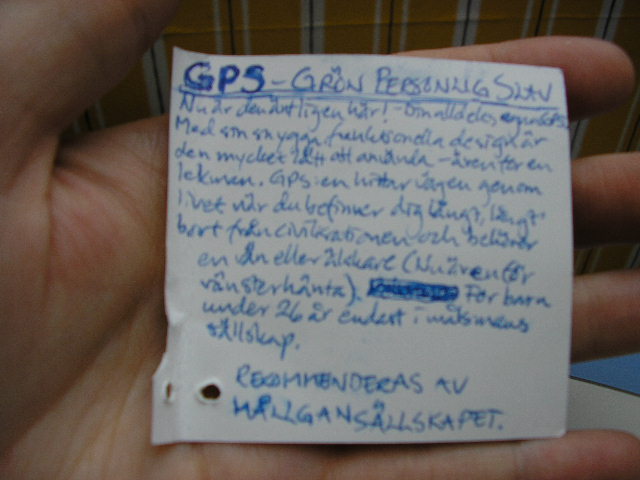 GPS - GRÖN PERSONLIG SLAV
Nu är den äntligen här! - Din alldeles egna GPS.
Med sin snygga, funktionella design är
den mycket lätt att använda - även för en
lekman. GPS:en hittar vägen genom
livet när du befinner dig långt, långt
bort från civilisationen och behöver
en vän eller älskare (Nu även för
vänsterhänta). För barn
under 26 år endast i målsmans
sällskap.
REKOMMENDERAS AV
MÅLLGANSÄLLSKAPET.